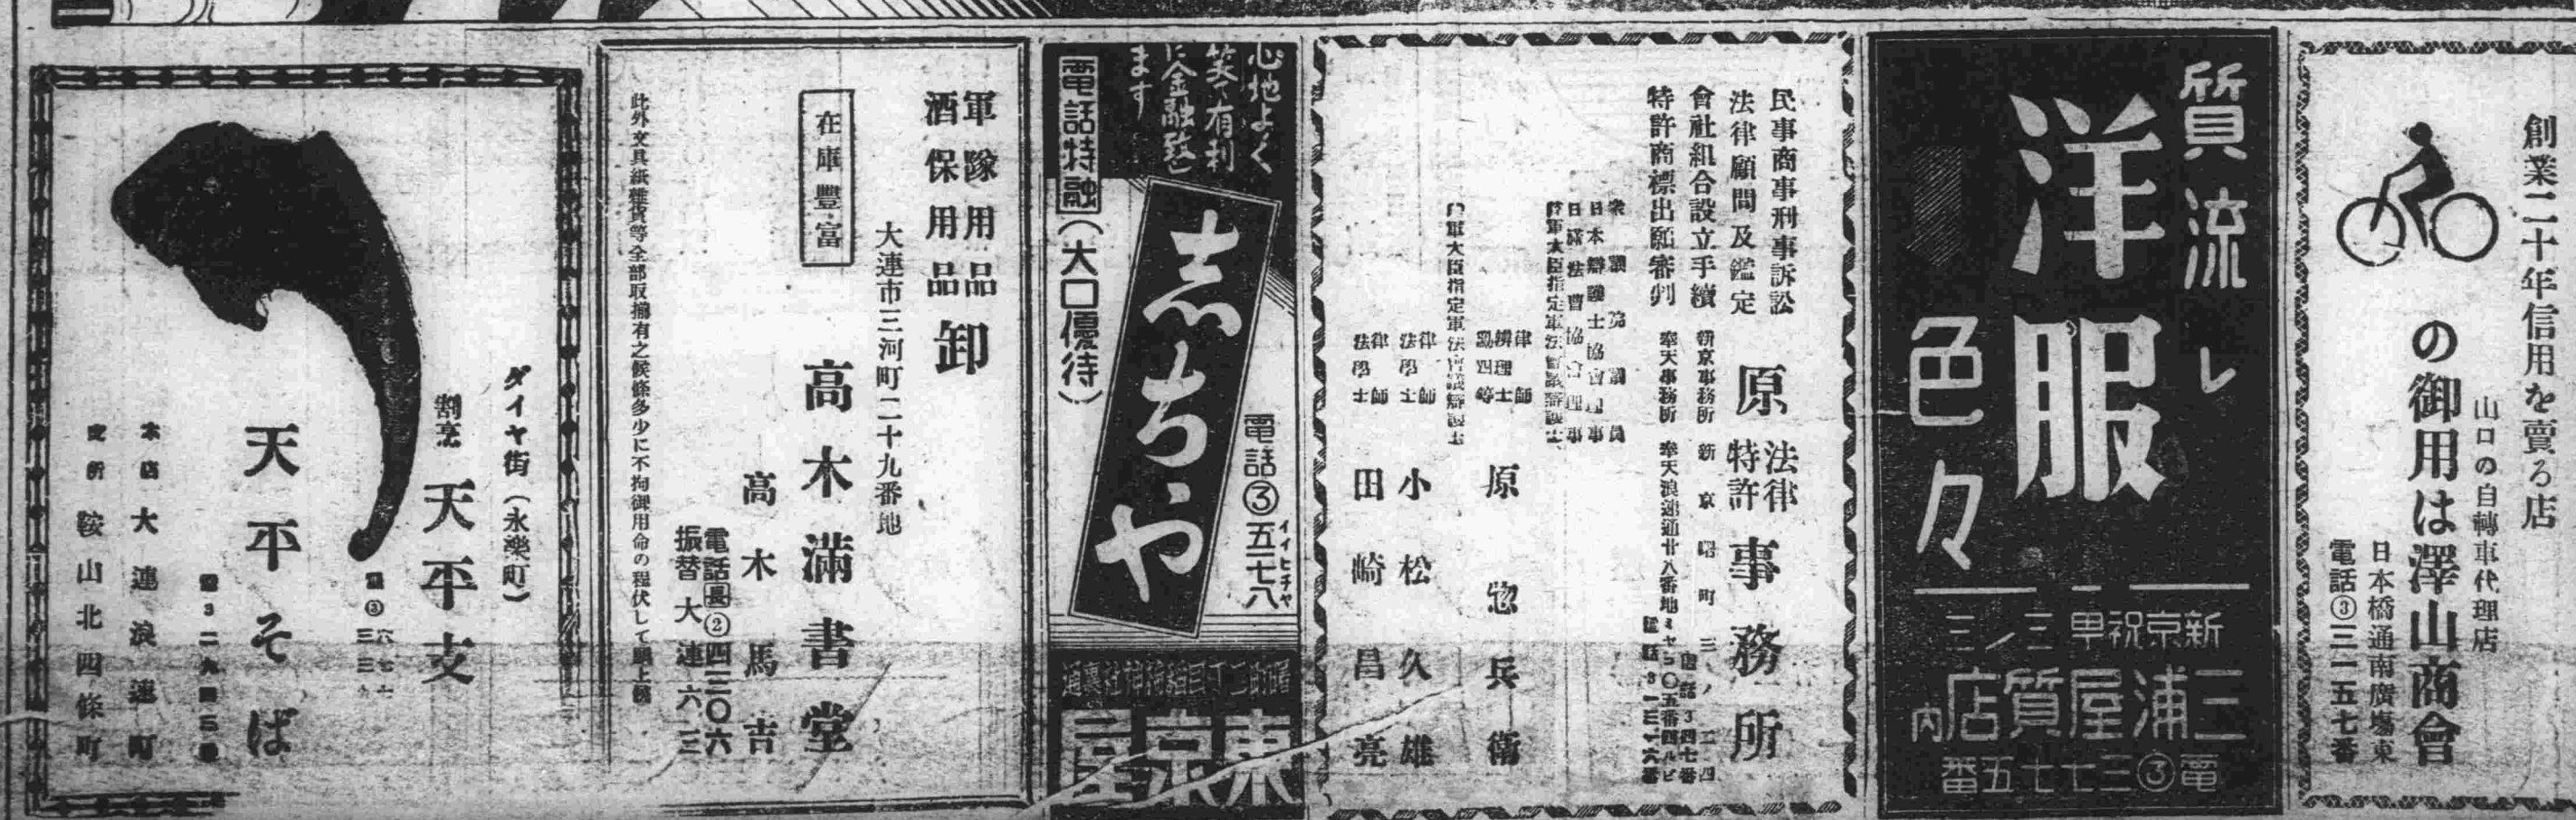 創業二十年信用を賣る店
山口の自轉車代理店
の御用は澤山商會
日本橋通南廣場東
電話③三一五七番
質流レ
洋服
色々
新京祝町三ノ三
三浦屋質店内
電③三七七五番
民事商事刑事訴訟
法律顧問及鑑定
會社組合設立手續
特許商標出願審判
原 法律特許 事務所
新京事務所 新京曙町三ノ二四
奉天事務所 奉天浪速通廿八番地
衆議院議員
日本辯護士協會理事
律師
辨理士
勳四等
原惣兵衛
律師
法學士
小松久雄
律師
法學士
田崎昌亮
心地よく
笑って有利
に金融致し
ます
電話特融
(大口優待)
志ちや
電話③五七八
イイヒチヤ
東京屋
軍隊用品
酒保用品 卸
大連市三河町二十九番地
在庫豐富
高木滿書堂
高木馬吉
電話長②四二〇六
振替大連六三
此外文具紙雜貨等全部取揃有之候條多少に不拘御用命の程伏して願上候
ダイヤ街(永樂町)
割烹 天平支
天平そば
本店 大連浪速町
支所 鞍山北四條町